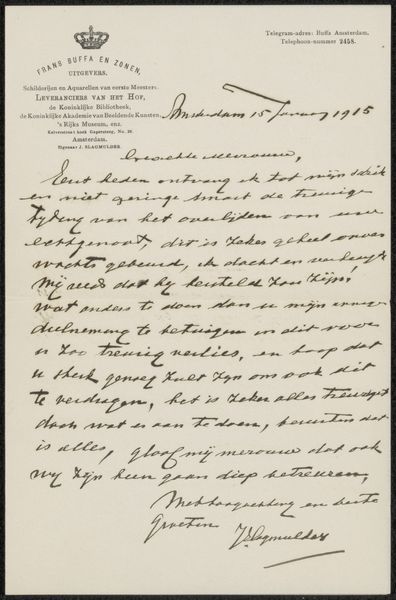 FRANS BUFFA EN ZONEN,
UITGEVERS.
Schilderijen en Aquarellen van eerste Meesters.
LEVERANCIERS VAN HET HOF,
de Koninklijke Bibliotheek,
de Koninklijke Akademie van Beeldende Kunsten,
's Rijks Museum, enz.
Kalverstraat hoek Gapersteeg, No. 39.
Amsterdam.
Eigenaar J. SLAGMULDER.
Telegram-adres: Buffa Amsterdam.
Telephoon-nummer 2458.
Amsterdam 15 January 1915
Geachte Mevrouw,
Eerst heden ontvang ik tot mijn schrik
en niet geringe smart de treurige
tijding van het overlijden van uw
echtgenoot, dit is zeker geheel onver
wachts gebeurd, ik dacht en
mij reeds dat hij herstelde zou zijn!
wat anders te doen dan u mijn innige
deelneming te betuigen in dit voor
u zoo treurig verlies, en hoop dat
u sterk genoeg zult zijn om ook dit
te verdragen, het is zeker alles treurig
doch wat er aan te doen, berusten dat
is alles, geloof mij mevrouw dat ook
wij zijn heen gaan diep betreuren,
Met hoogachting en beste
Groeten JSlagmulder